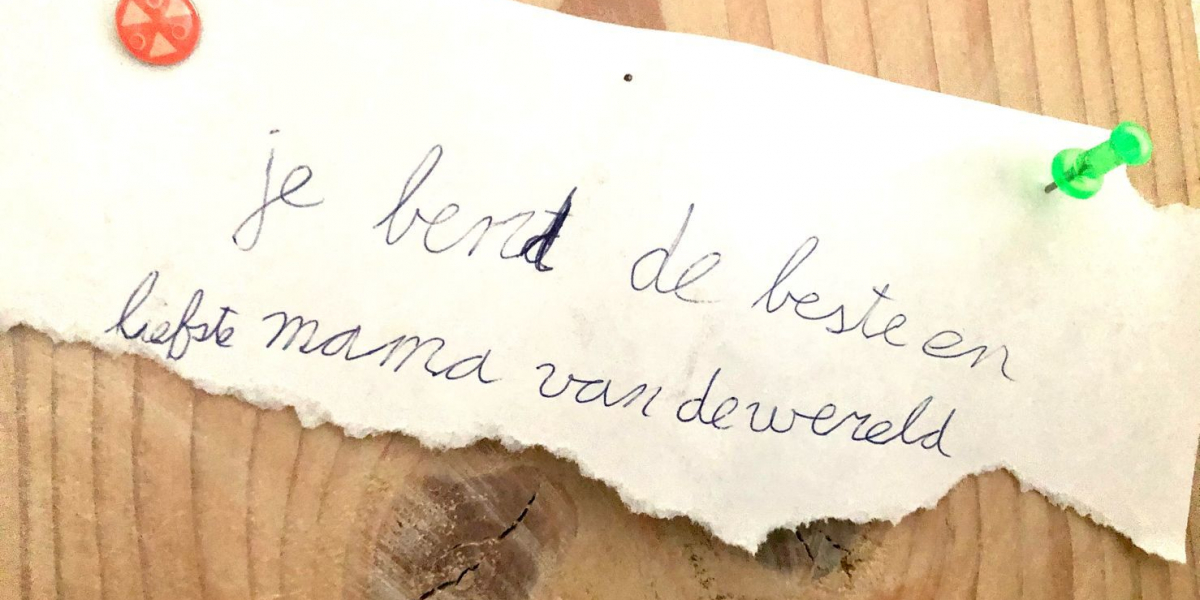 je bent de beste en
liefste mama van de wereld